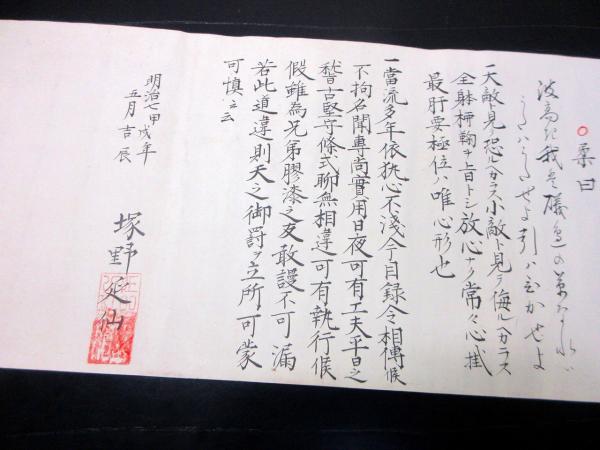 波高き我も礒邊の
うたハうたせよ引ハひかせよ
一大敵見恐ルヘカラス小敵ト見テ侮ルヘカラス
全躰 ヲ旨トシ放心ナク常々心掛
最肝要極位ハ唯心形也
一當流多年依執心不淺今目録令相傳候
不拘名聞專尚實用日夜可有工夫平日之
稽古堅守條式聊無相違可有執行候
假雖為兄弟膠漆之友敢謾不可漏
若此道違則天之御罰ヲ立所ニ可蒙
可慎云云
明治七甲戌年
五月吉辰
塚野延仙